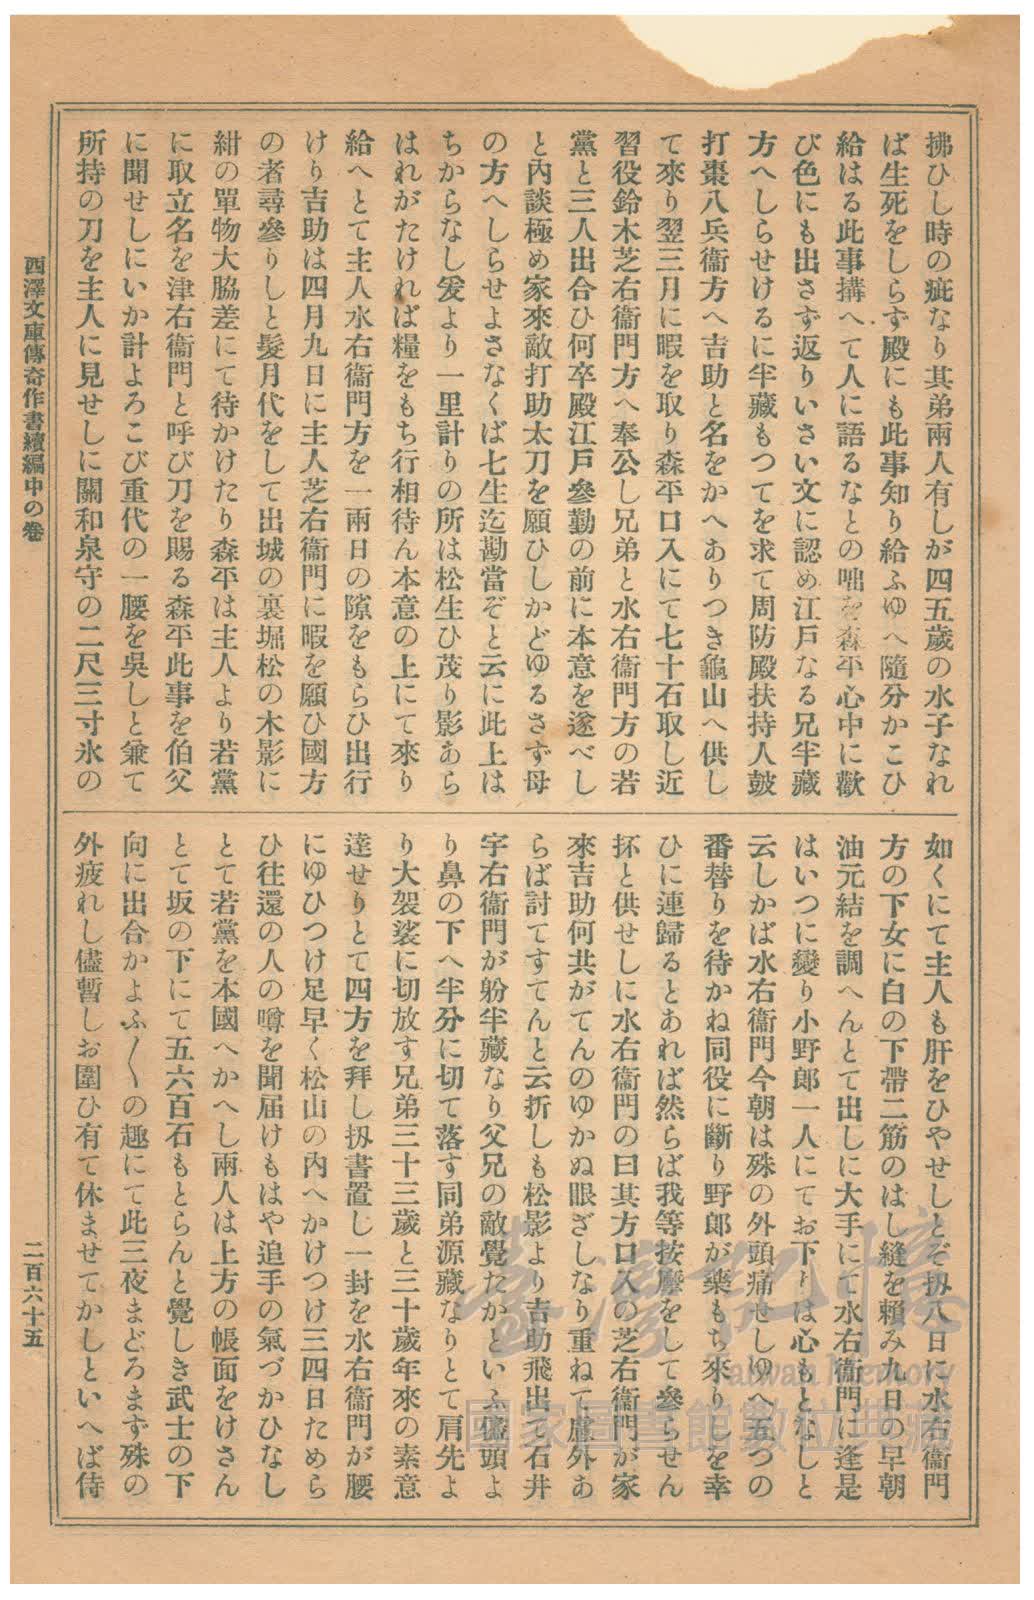 拂ひし時の疵なり其弟兩人有しが四五歲の水子なれ
ば生死をしらず殿にも此事知り給ふゆへ隨分かこひ
給はる此事搆へて人に語るなとの咄を森平心中に歡
び色にも出さず返りいさい文に認め江戸なる兄半藏
方へしらせけるに半藏もつてを求て周防殿扶持人皷
打棗八兵衞方へ吉助と名をかへありつき龜山へ供し
て來り翌三月に暇を取り森平口入にて七十石取し近
習役鈴木芝右衞門方へ奉公し兄弟と水右衞門方の若
黨と三人出合ひ何卒殿江戸參勤の前に本意を遂べし
と內談極め家來敵打助太刀を願ひしかどゆるさず母
の方へしらせよさなくば七生迄勘當ぞと云に此上は
ちからなし爰より一里計りの所は松生ひ茂り影あら
はれがたければ糧をもち行相待ん本意の上にて來り
給へとて主人水右衞門方を一兩日の隙をもらひ出行
けり吉助は四月九日に主人芝右衞門に暇を願ひ國方
の者尋參りしと髮月代をして出城の裏堀松の木影に
紺の單物大脇差にて待かけたり森平は主人より若黨
に取立名を津右衞門と呼び刀を賜る森平此事を伯父
に聞せしにいか計よろこび重代の一腰を吳しと兼て
所持の刀を主人に見せしに關和泉守の二尺三寸氷の
如くにて主人も肝をひやせしとぞ扨八日に水右衞門
方の下女に白の下帶二筋のはし縫を賴み九日の早朝
油元結を調へんとて出しに大手にて水右衞門に逢是
はいつに變り小野郎一人にてお下りは心もとなしと
云しかば水右衞門今朝は殊の外頭痛せしゆへ五つの
番替りを待かね同役に斷り野郎が藥もち來りしを幸
ひに連歸るとあれば然らば我等按摩をして參らせん
抔と供せしに水右衞門の曰其方口入の芝右衞門が家
來吉助何共がてんのゆかぬ眼ざしなり重ねて慮外あ
らば討てすてんと云折しも松影より吉助飛出て石井
宇右衞門が躮半藏なり父兄の敵覺たかといふ儘頭よ
り鼻の下へ半分に切て落す同弟源藏なりとて肩先よ
り大袈裟に切放す兄弟三十三歲と三十歲年來の素意
達せりとて四方を拜し扨書置し一封を水右衞門が腰
にゆひつけ足早く松山の內へかけつけ三四日ためら
ひ往還の人の噂を聞届けもはや追手の氣づかひなし
とて若黨を本國へかへし兩人は上方の帳面をけさん
とて坂の下にて五六百石もとらんと覺しき武士の下
向に出合かよふ〳〵の趣にて此三夜まどろまず殊の
外疲れし儘暫しお圍ひ有て休ませてかしといへば侍
西澤文庫傳奇作書續編中の卷
二百六十五
臺灣記憶
Taiwan Memory
國家圖書館數位典藏